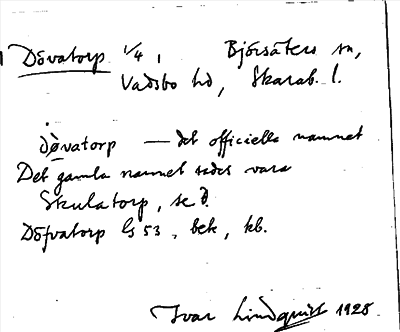 Dövatorp 1/4, Björsäters sn,
Vadsbo hd, Skarab. l.
døvatorp — det officiella namnet
Det gamla namnet sades vara
Skulatorp, se d.
Döfvatorp GS 53, bek, kb.
Ivar Lindquist 1928